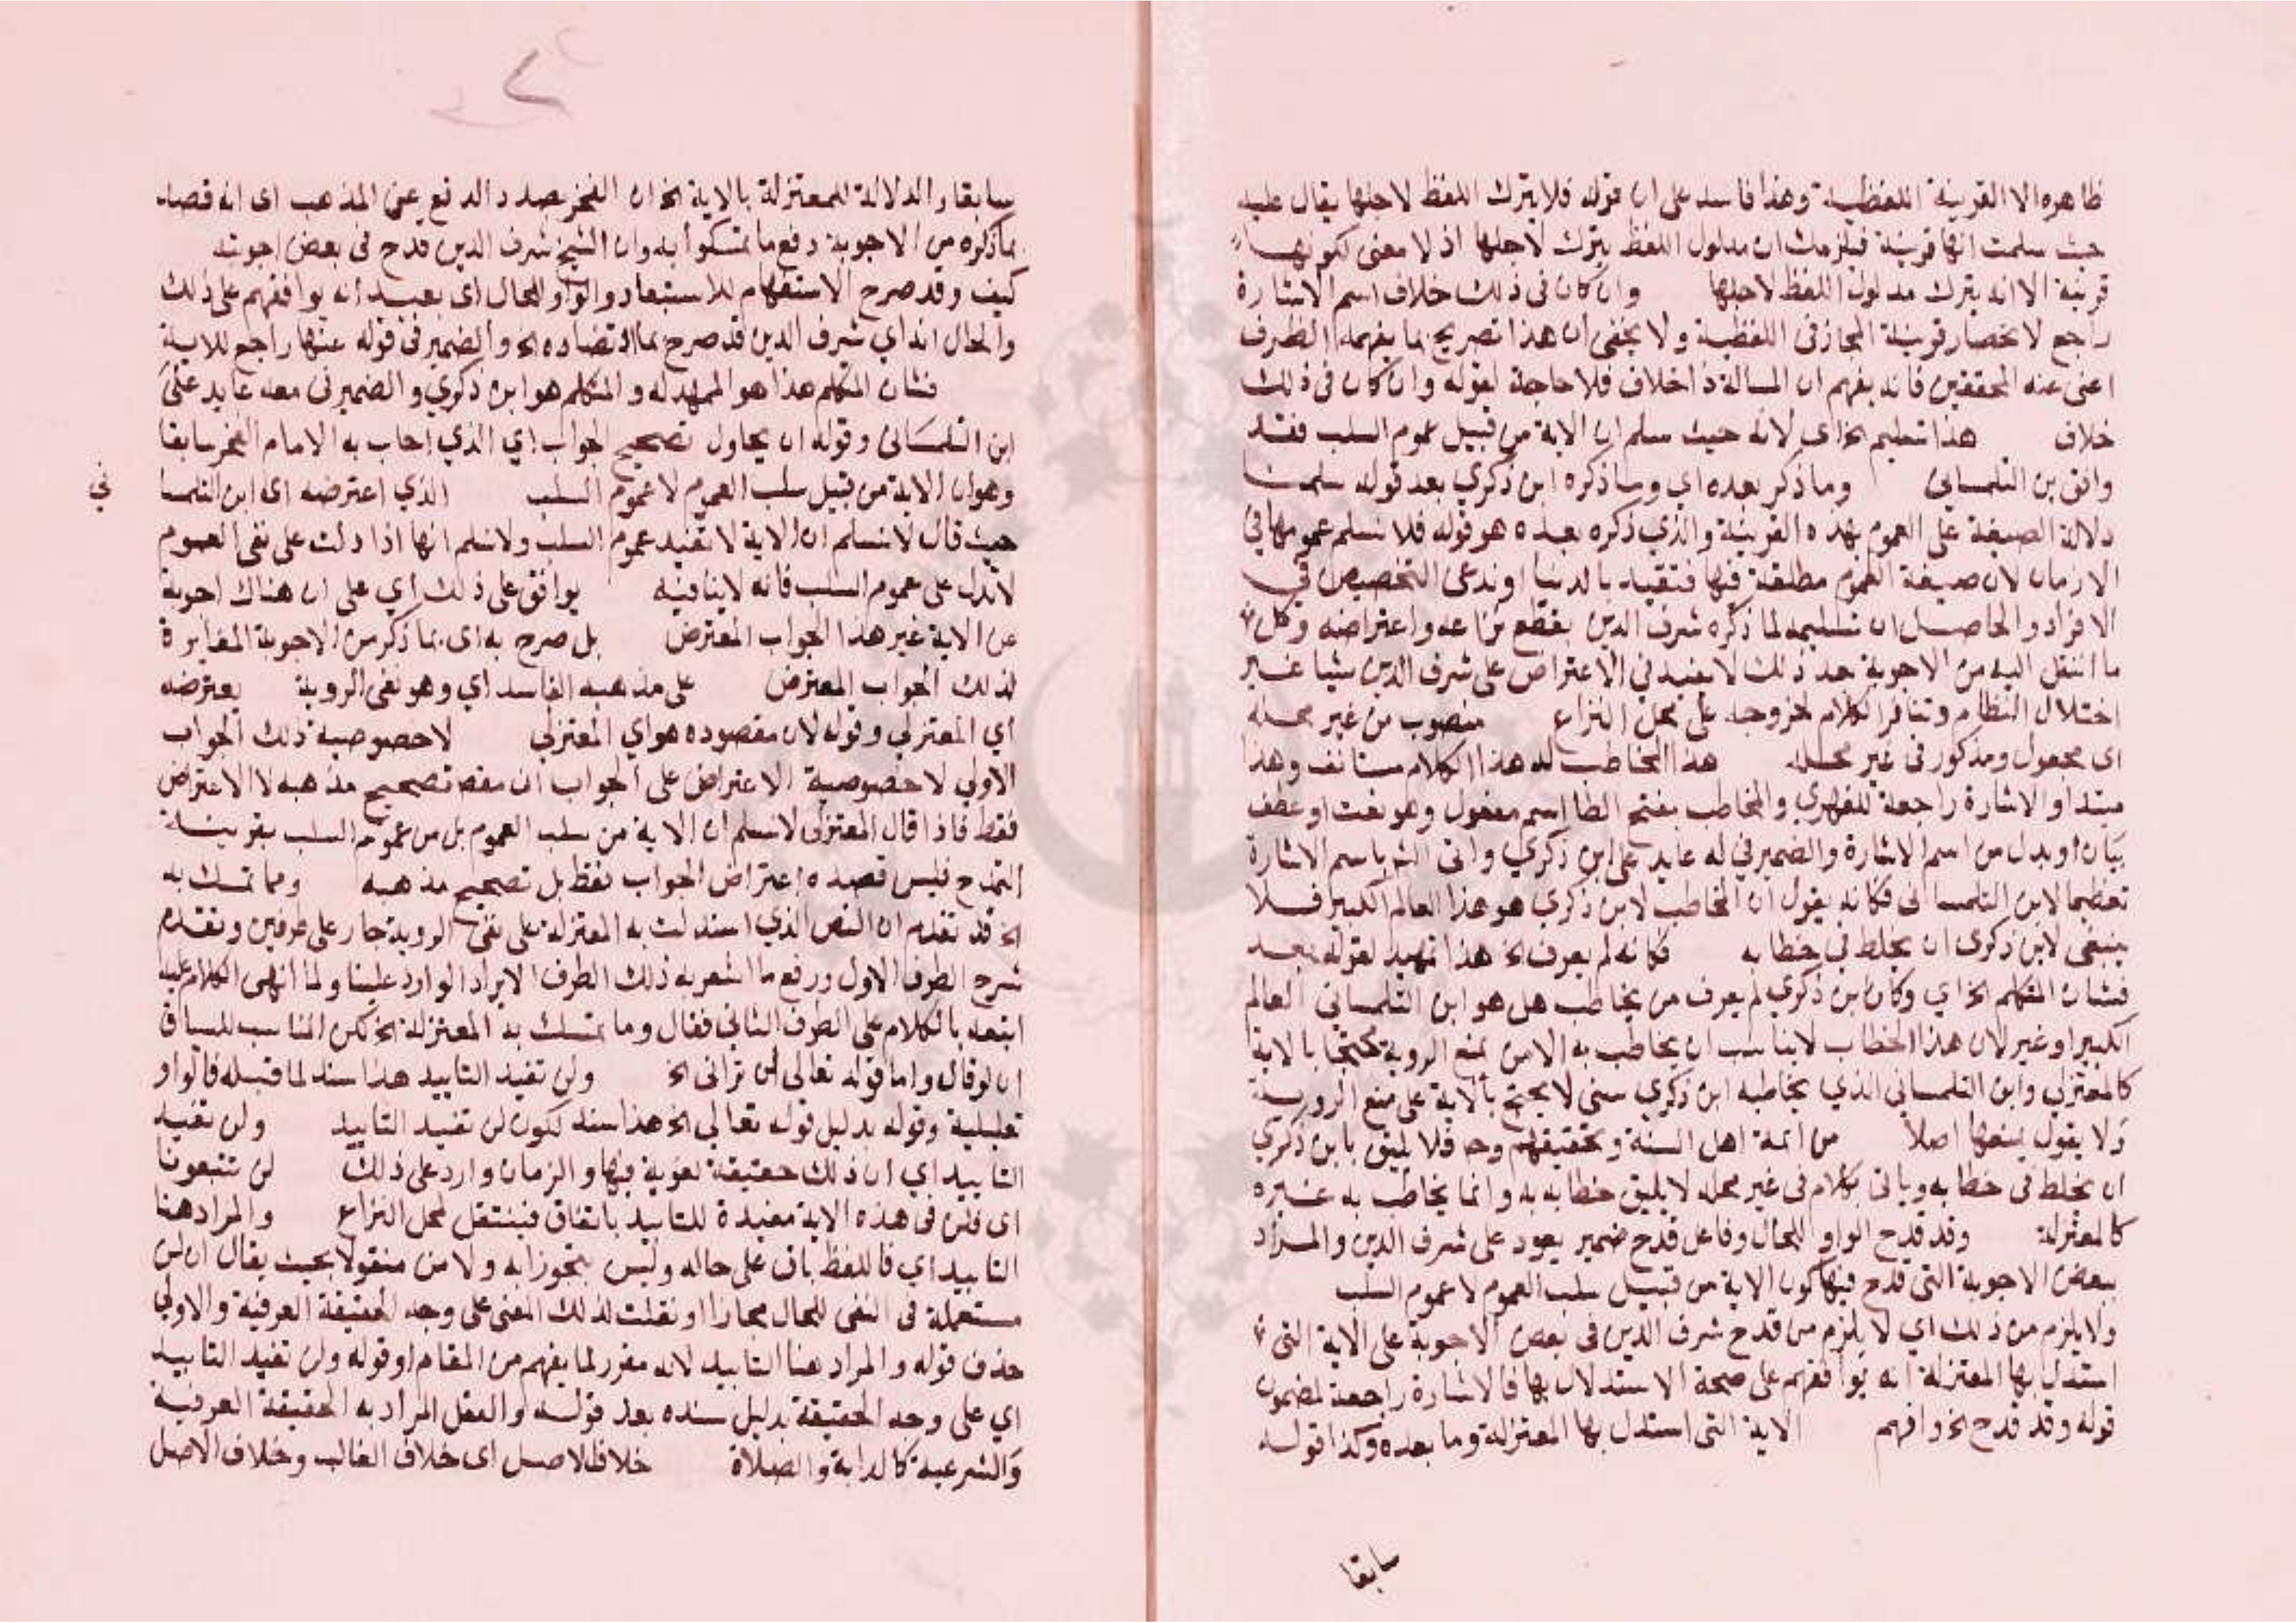 ظاهره الا القرينة اللفظية وهذا فاسد على ان قوله فلا يترك اللفظ لاجلها يقال عليه
حيث سلمت انها قرينة فيلزمك ان مدلول اللفظ يترك لاجلها اذ لا معنى لكونها
قرينة الا انه يترك مدلول اللفظ لاجلها وان كان فى ذلك خلاف اسم الاشارة
راجع لانحصار قرينة المجاز فى اللفظية ولا يخفى ان هذا تصريح بما يفهمه الظرف
اعنى عند المحققين فانه يفهم ان المسالة ذا خلاف فلا حاجة لقوله وان كان فى ذلك
خلاف هذا تسليم الخ اى لانه حيث سلم ان الاية من قبيل عموم السلب فقد
وافق بن التلمسانى وما ذكر بعده اي وما ذكره ابن ذكري بعد قوله سلمنا
دلالة الصيغة على العموم بهذه القرينة والذي ذكره بعده هو قوله فلا نسلم عمومها في
الازمان لان صيغة العموم مطلقة فيها فتقيد بالدنيا او ندعى التخصيص في
الافراد والحاصل ان تسليمه لما ذكره شرف الدين يقطع نزاعه واعتراضه وكل
ما انتقل اليه من الاجوبة بعد ذلك لا يفيد في الاعتراض على شرف الدين شيا غير
اختلال النظام وتنافر الكلام لخروجه على محل النزاع منصوب من غير محله
اى مجعول ومذكور فى غير محله هذا المخاطب له هذا الكلام مستانف وهذا
مبتدا والاشارة راجعة للفهري والمخاطب بفتح الطا اسم مفعول وهو نعت او عطف
بيان او بدل من اسم الاشارة والضمير في له عايد على ابن ذكري واتى الشر باسم الاشارة
تعظيما لابن التلمسانى فكانه يقول ان المخاطب لابن ذكري هو هذا العالم الكبير فلا
ينبغى لابن ذكرى ان يخلط في خطابه فكانه لم يعرف الخ هذا تمهيد لقوله بعد
فشان المتكلم الخ اي وكان ابن ذكري لم يعرف من يخاطب هل هو ابن التلمساني العالم
الكبير او غير لان هذا الخطاب لا يناسب ان يخاطب به الا من يمنع الروية محتجا بالاية
كالمعتزلي وابن التلمساني الذي يخاطبه ابن ذكري سنى لا يحتج بالاية على منع الروية
ولا يقول بمنعها اصلا من ائمة اهل السنة ومحققيهم وح فلا يليق بابن ذكري
ان يخلط فى خطابه وياتى بكلام فى غير محله لا يليق خطابه به وانما يخاطب به غيره
كالمعتزلة وقد قدح الواو للحال وفاعل قدح ضمير يعود على شرف الدين والمراد
ببعض الاجوبة التى قدح فيها كون الاية من قبيل سلب العموم لا عموم السلب
ولا يلزم من ذلك اي لا يلزم من قدح شرف الدين فى بعض الاجوبة على الاية التى
استدل بها المعتزلة انه يوافقهم على صحة الاستدلال بها فالاشارة راجعة لمضمون
قوله وقد قدح الخ وافهم الاية التى استدل بها المعتزلة وما بعده وكذا قوله
سابقا
سابقا والدلالة للمعتزلة بالاية الخ ان الفخر بصدد الدفع عن المذهب اى انه قصد
بما ذكره من الاجوبة دفع ما تمسكوا به وان الشيخ شرف الدين قدح فى بعض اجوبته
كيف وقد صرح الاستفهام للاستبعاد والواو للحال اى بعيد انه يوافقهم على ذلك
والحال انه اي شرف الدين قد صرح بما اقتضاده الخ والضمير فى قوله عنها راجع للاية
فشان المتكلم هذا هو الممهد له والمتكلم هو ابن ذكري والضمير فى معه عايد على
ابن التلمسانى وقوله ان يحاول تصحيح الجواب اي الذي اجاب به الامام الفخر سابقا
وهو ان الاية من قبيل سلب العموم لا عموم السلب الذي اعترضه اى ابن التلمسا
ني
حيث قال لا نسلم ان الاية لا تفيد عموم السلب ولا نسلم انها اذا دلت على نفى العموم
لا تدل على عموم السلب فانه لا ينافيه يوافق على ذلك اي على ان هناك اجوبة
عن الاية غير هذا الجواب المعترض بل صرح به اى بما ذكر من الاجوبة المغايرة
لذلك الجواب المعترض على مذهبه الفاسد اي وهو نفى الروية يعترضه
اي المعتزلي وقوله لان مقصوده هو اي المعتزلي لا خصوصية ذلك الجواب
الاولي لا خصوصية الاعتراض على الجواب ان مقصه تصحيح مذهبه لا الاعتراض
فقط فاذا قال المعتزلى لا نسلم ان الاية من سلب العموم بل من عموم السلب بقرينة
التمدح فليس قصده اعتراض الجواب فقط بل تصحيح مذهبه ومما تمسك به
الخ قد تقدم ان النص الذي استدلت به المعتزلة على نفى الروية جار على طرفين وتقدم
شرح الطرف الاول ورفع ما اشعر به ذلك الطرف الايراد الوارد علينا ولما انهى الكلام عليه
اتبعه بالكلام على الطرف الثاني فقال وما تمسك به المعتزلة الخ لكن المناسب للسياق
ان لو قال واما قوله تعالى لن تراني الخ ولن تفيد التابيد هذا سند لما قبله فالواو
تعليلية وقوله بدليل قوله تعالي الخ هذا سند لكون لن تفيد التابيد ولن تفيد
التابيد اي ان ذلك حقيقة لغوية فيها والزمان وارد على ذلك لن تتبعونا
اى فلن فى هذه الاية مفيدة للتابيد باتفاق فينتقل لمحل النزاع والمراد هنا
التابيد اي فاللفظ باق على حاله وليس متجوزا به ولا من منقولا بحيث يقال ان لن
مستعملة فى النفى للحال مجازا او نقلت لذلك المعنى على وجه الحقيقة العرفية والاولي
حذف قوله والمراد هنا التابيد لانه مقرر لما يفهم من المقام او قوله ولن تفيد التابيد
اي على وجه الحقيقة بدليل سنده بعد قوله والنقل المراد به الحقيقة العرفية
والشرعية كالدابة والصلاة خلاف الاصل اى خلاف الغالب وخلاف الاصل